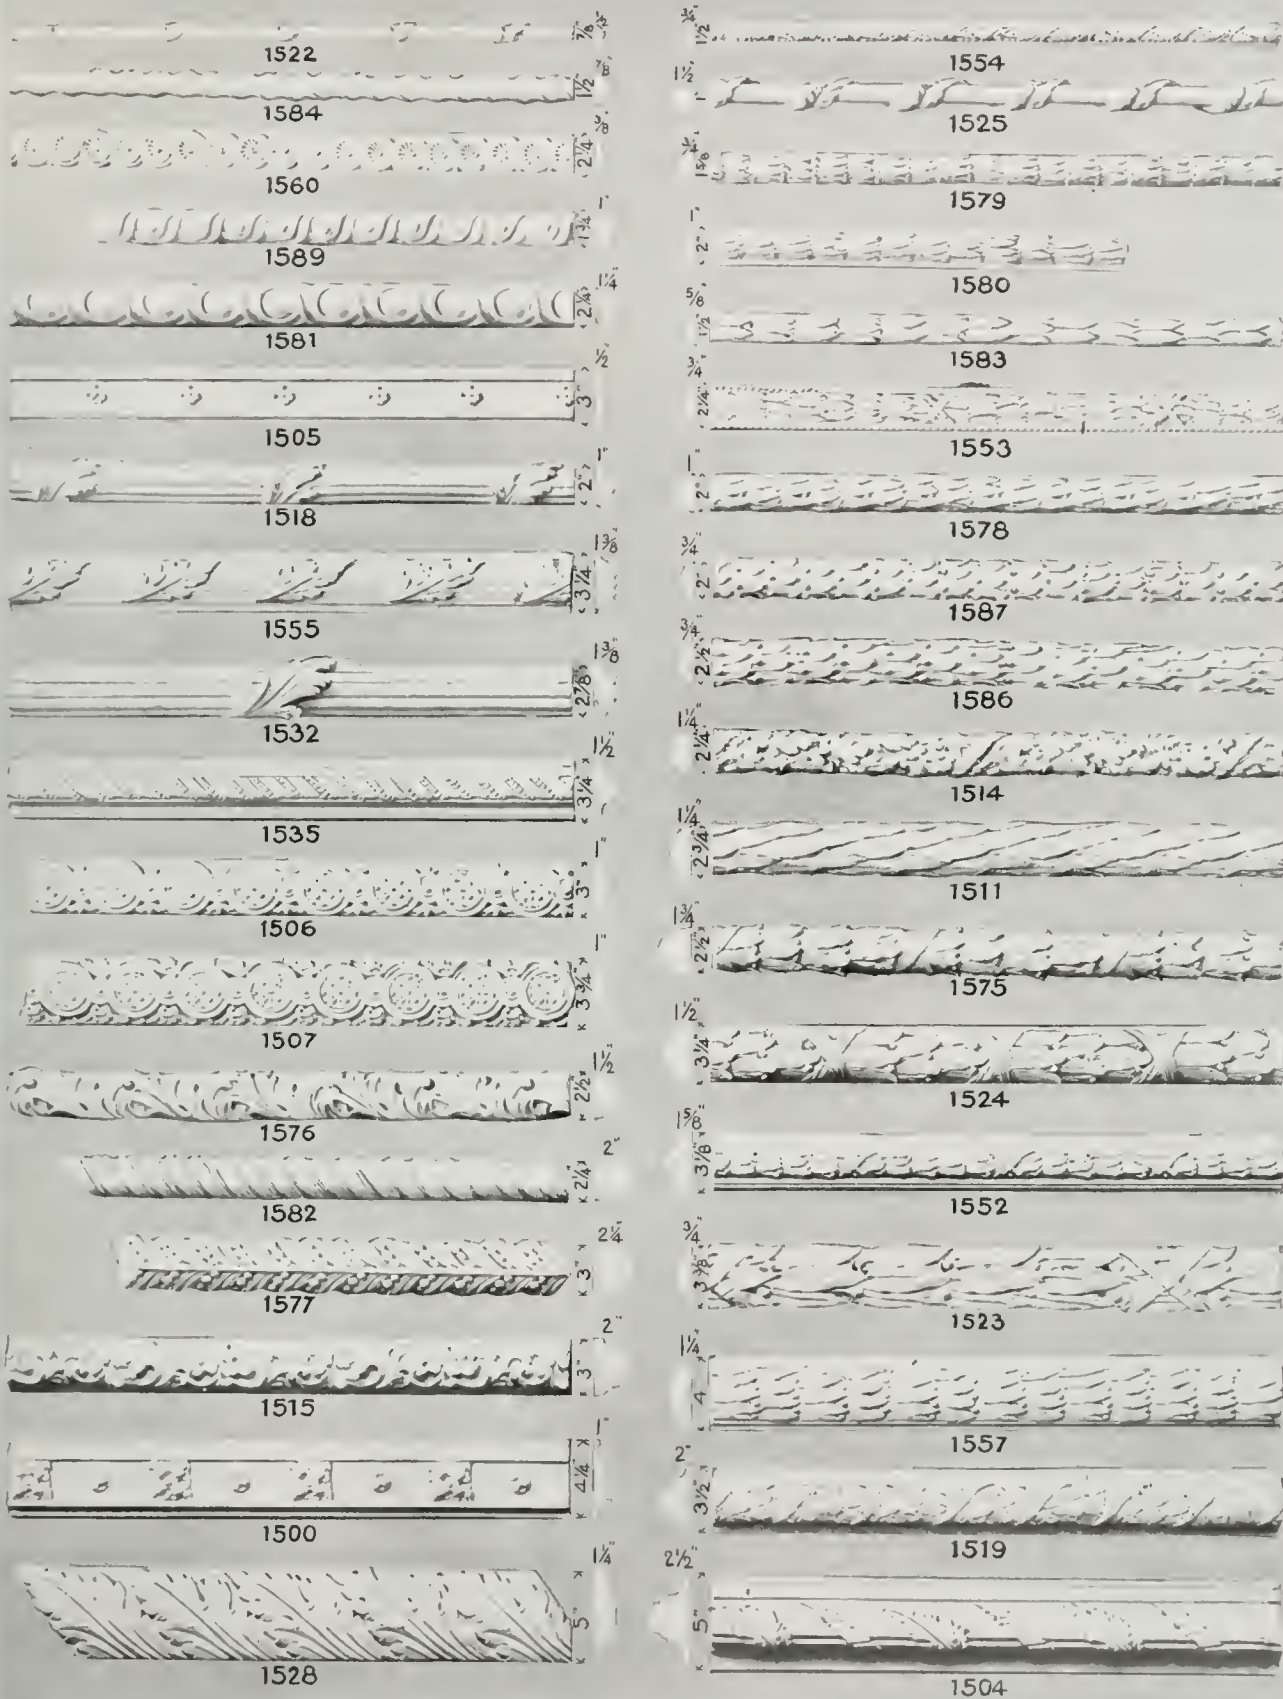 7/8"
1522
7/8"
1 1/2
1584
2 1/4"
1560
1"
1 3/4"
1589
1 1/4"
2 1/4"
1581
1/2"
3"
1505
1"
2"
1518
1 3/8"
3 1/4"
1555
1 3/8"
2 7/8"
1532
1 1/2"
3 1/4
1535
1"
3"
1506
1"
3 3/4"
1507
1 1/2"
2 1/2"
1576
2"
2 1/4"
1582
2 1/4"
3"
1577
2"
3"
1515
1"
4 1/4"
1500
1 1/4"
5"
1528
3/4"
1 1/2"
1554
1 1/2"
1"
1525
3/4"
1 5/8"
1579
1"
2"
1580
5/8"
1 1/2"
1583
3/4"
2 1/4"
1553
1"
2"
1578
3/4"
2"
1587
3/4"
2 1/2"
1586
1 1/4"
2 1/4"
1514
1 1/4"
2 3/4"
1511
1 3/4"
2 1/2"
1575
1 1/2"
3 1/4"
1524
1 5/8"
3 1/8"
1552
3/4"
3 7/8"
1523
1 1/4"
4"
1557
2"
3 1/2"
1519
2 1/2"
5"
1504